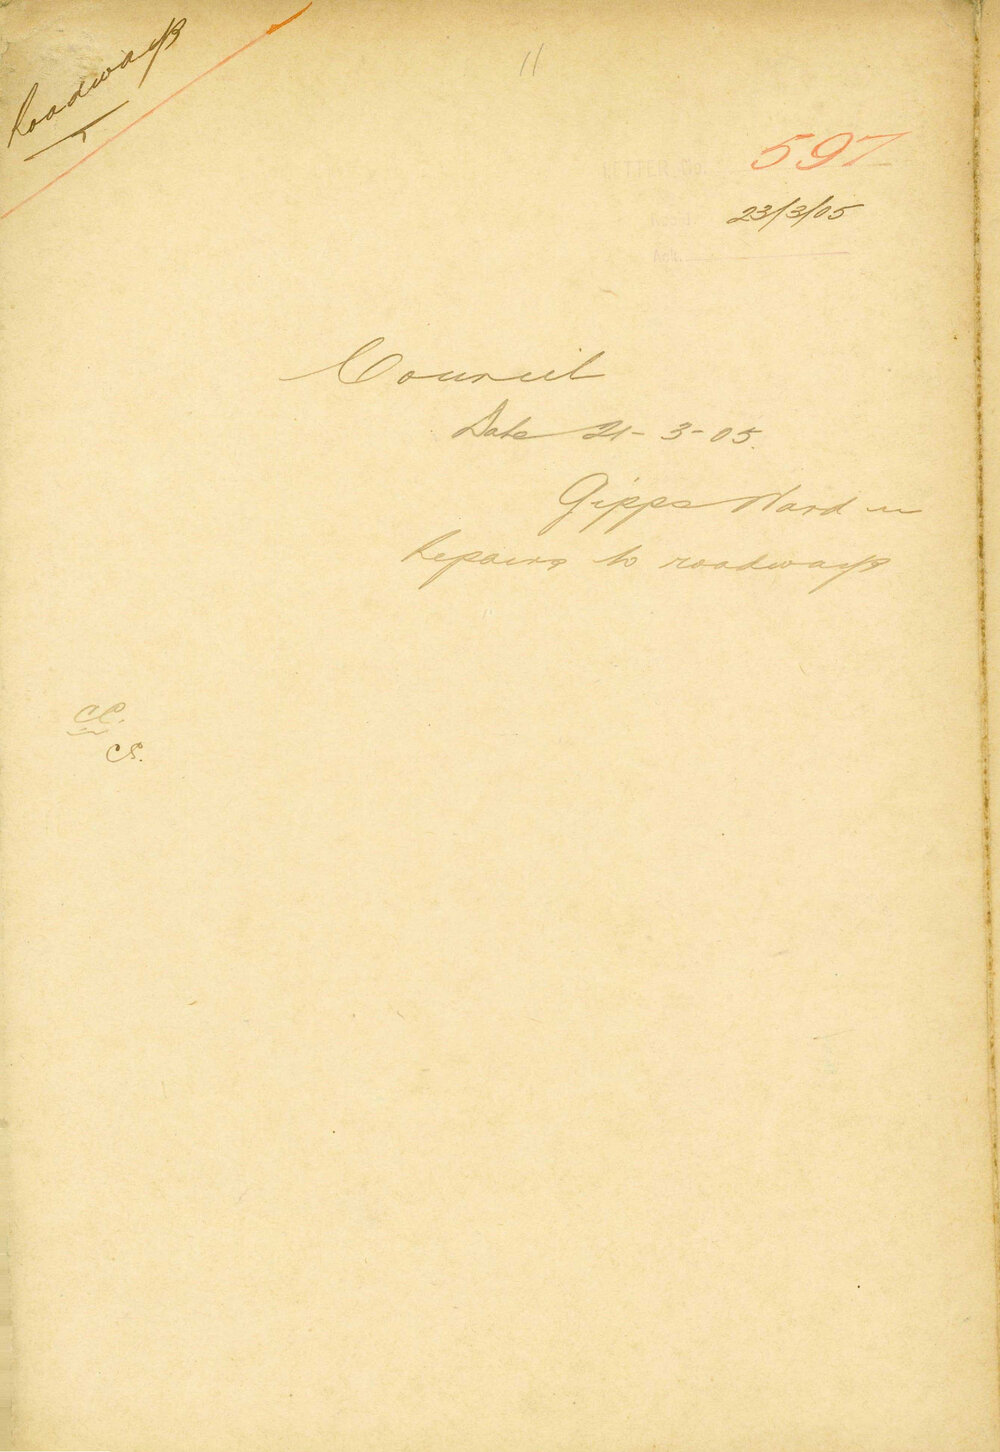 Roadways
11
LETTER No. 597
Recd. 23/3/05
Ack.
Council
Date 21-3-05.
Gipps Ward re
Repairs to roadways
CS.